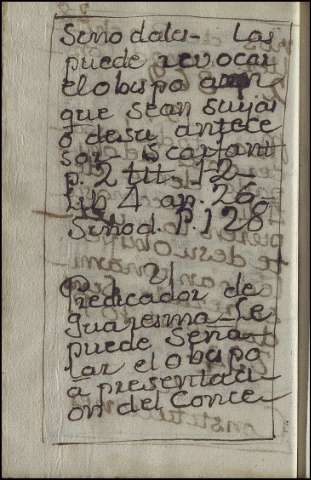 Sinodales - Las
puede revocar
el obispo aun
que sean suyas
o desu antece
sor - Scortant
p. 2 titt. 12 -
Lib 4 ap. 26.
Sinod. P. 128
Predicador de
quaresma - Se
puede Seña-
lar el obispo
a presentaci
on del Conce-